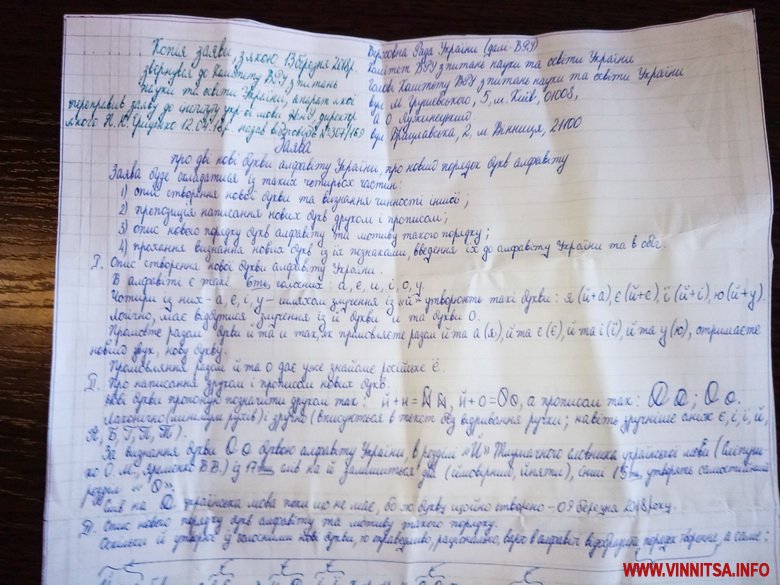 Копія заяви, з якою 13 березня 2018р.
звернувся до Комітету ВРУ з питань
науки та освіти України, апарат якої
переправив заяву до інституту укр-ої мови НАНУ, директор
якого П. Ю. Гриценко 12.04.18р. надав відповідь №307/169
Верховна Рада України (далі-ВРУ)
Комітет ВРУ з питань науки та освіти України
Голова Комітету ВРУ з питань науки та освіти України
вул. М. Грушевського, 5, м. Київ, 01008,
А. О. Лужинецький
вул. Брацлавська, 2, м. Вінниця, 21100
Заява
про дві нові букви алфавіту України, про новий порядок букв алфавіту
Заява буде складатися із таких чотирьох частин:
1) опис створення нової букви та визнання чинності іншої;
2) пропозиція написання нових букв друком і прописом;
3) опис нового порядку букв алфавіту та мотиву такого порядку;
4) прохання визнання нових букв із їх познаками, введення їх до алфавіту України та в обіг.
I. Опис створення нової букви алфавіту України.
В алфавіті є такі 6ть голосних: а, е, и, і, о, у.
Чотири із них - а, е, і, у - шляхом злучення із "й" утворюють такі букви: я (й+а), є (й+е), ї (й+і), ю (й+у).
Логічно, має відбутися злучення із й букви и та букви о.
Промовте разом букви й та и так, як промовляєте разом й та а (я), й та е (є), й та і (ї), й та у (ю), отримаєте
новий звук, нову букву.
Промовляння разом й та о дає уже знайоме російське ё.
II. Про написання друком і прописом нових букв.
Нові букви пропоную позначити друком так: й+и=, й+о=, а прописом так:
Лаконічно (мінімум рухів) і зручно (вписуються в текст без відривання ручки; навіть зручніше аніж є, і, ї, й,
Я, Б, Г, П, Т).
За визнання букви буквою алфавіту України, в розділі «Й» Тлумачного словника української мови
О. М., В. В.) із 17ти слів на й залишиться два (ймовірний, йняти), інші 15ть утворять самостійний
розділ
Слів на українська мова поки що не має, бо ж букву щойно створено - 09 березня 2018 року.
Опис нового порядку букв алфавіту та мотиву такого порядку.
Оскільки й утворює із голосними нові букви, то справедливо, раціонально, варто в алфавіті відобразити порядок творення, а саме:
WWW.VINNITSA.INFO